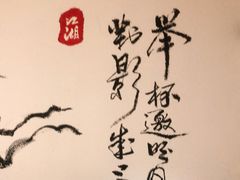 举杯邀明月
对影成三
江湖